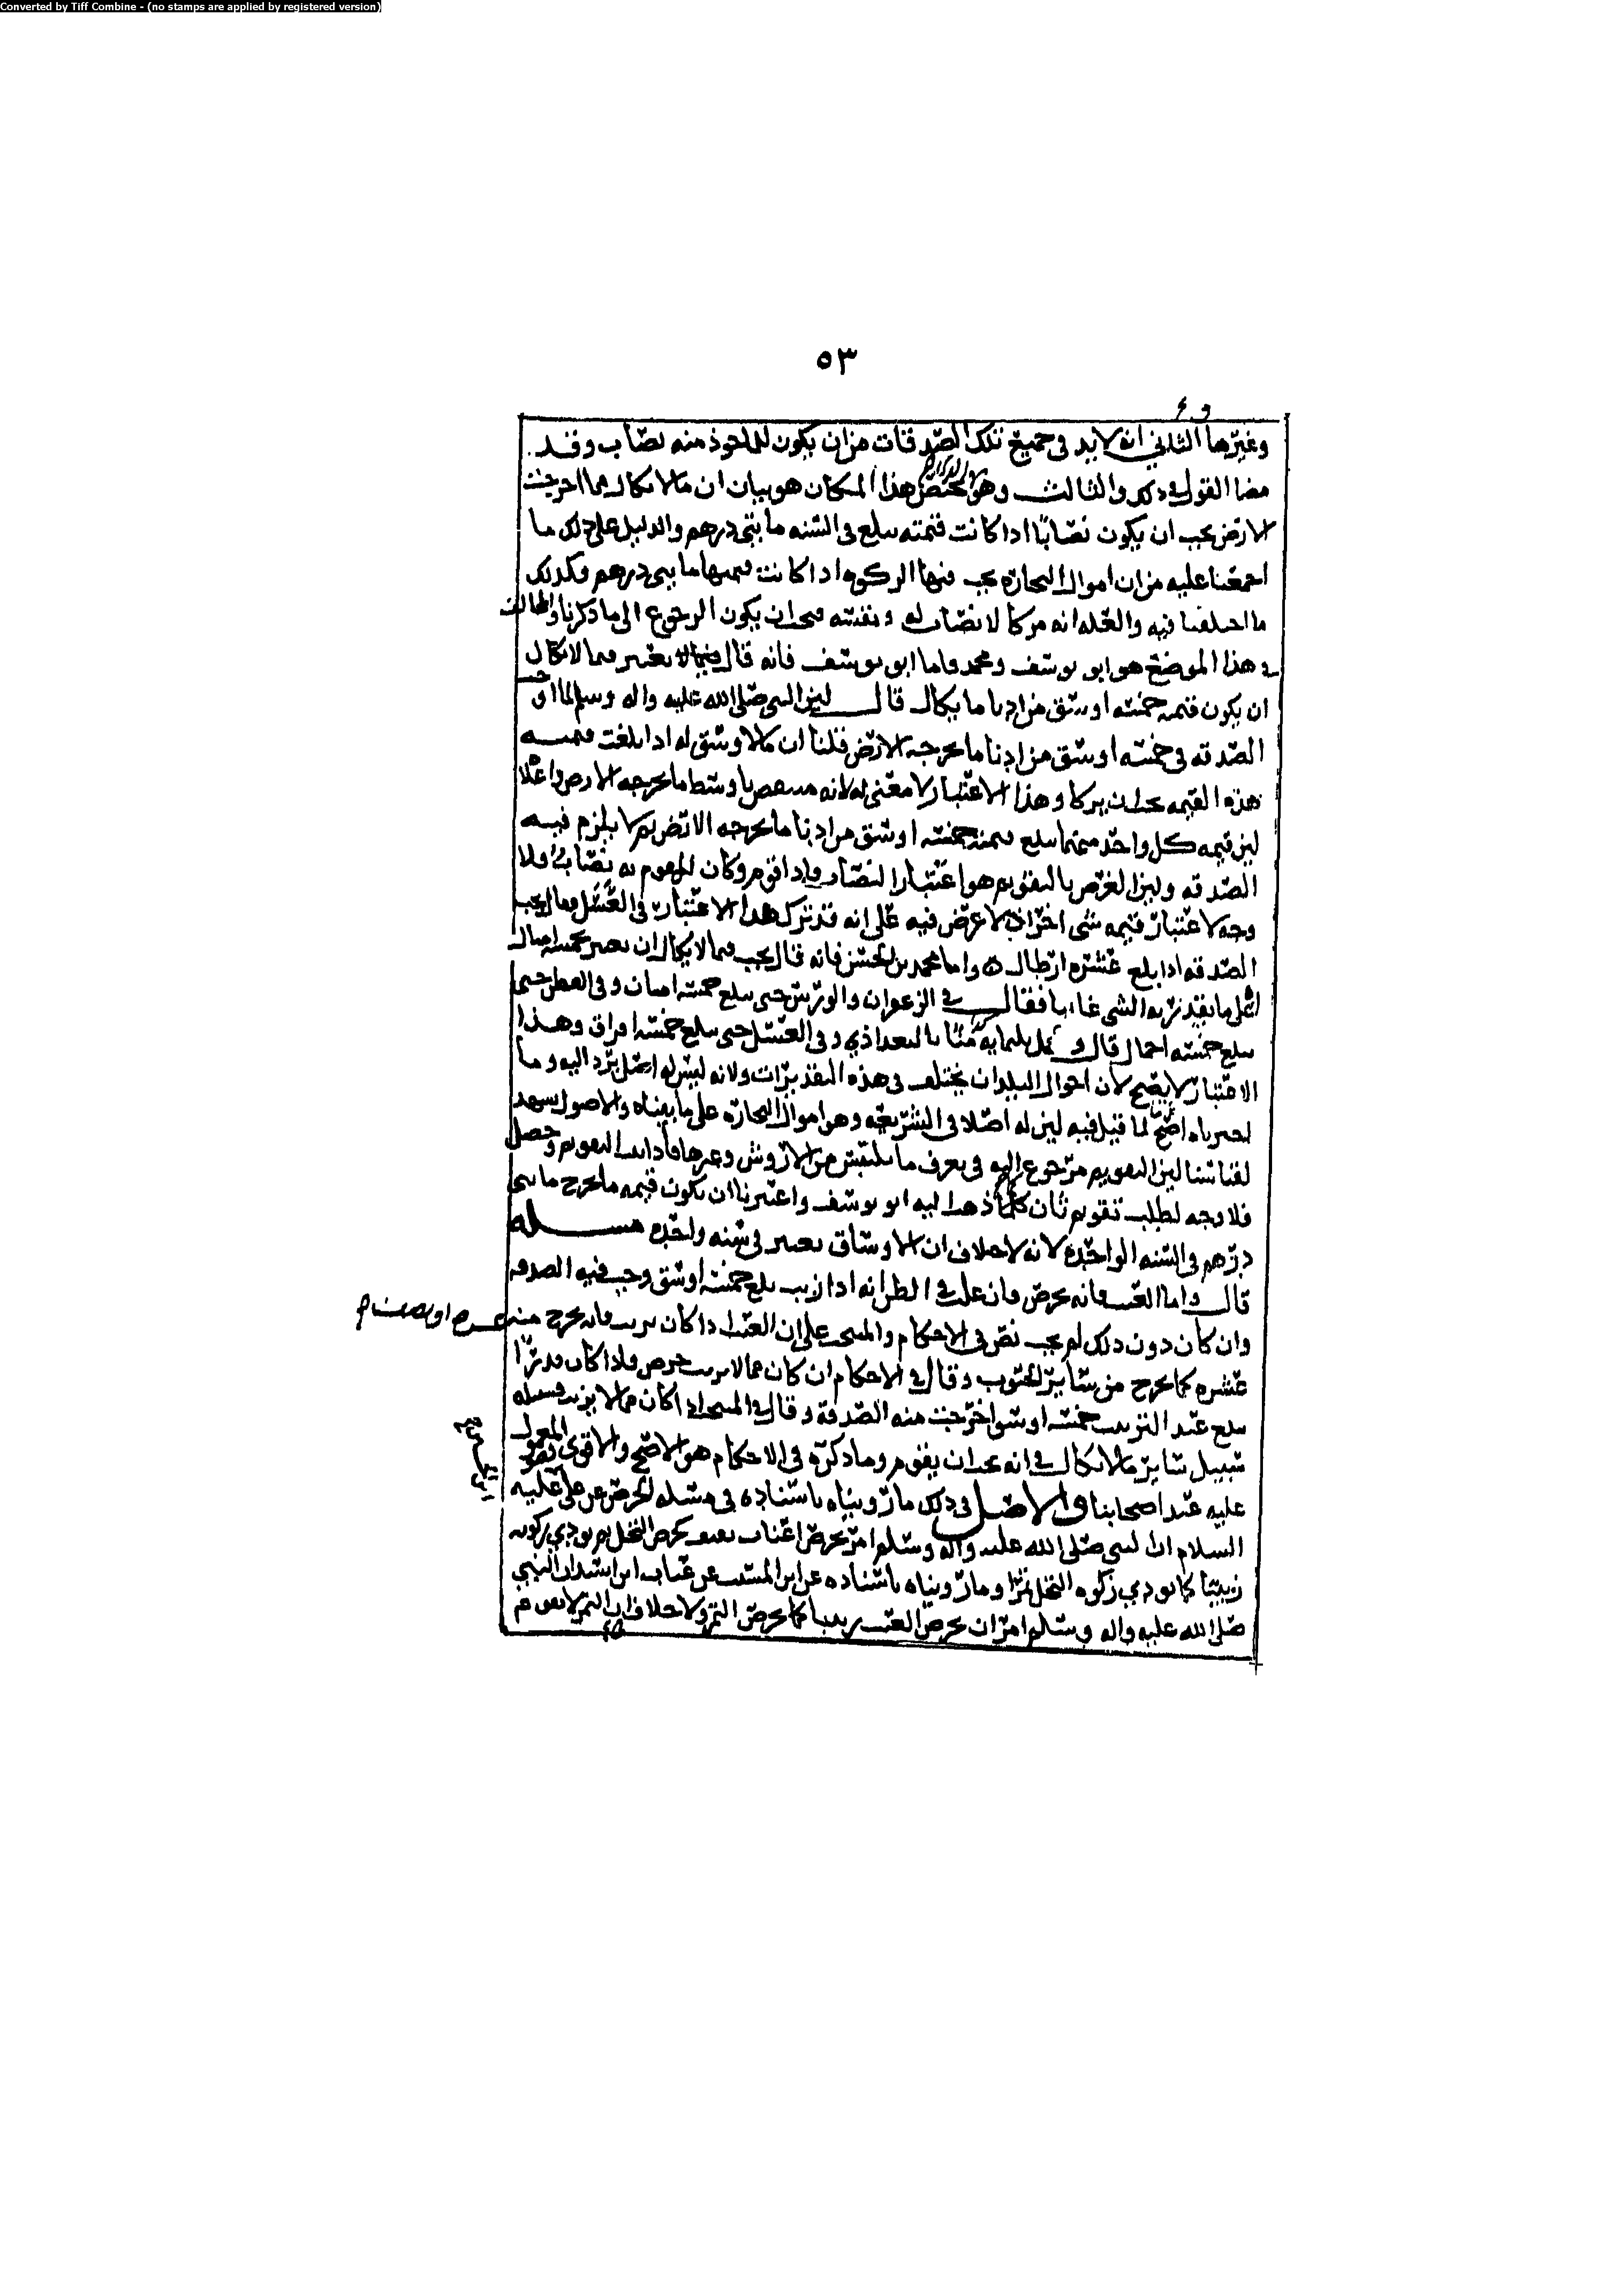 Converted by Tiff Combine - (no stamps are applied by registered version)
٥٣
وغيرها الثاني انه لابد في جميع تلك الصدقات من ان يكون للماخوذ منه نصاب وقد
مضا القول في ذلك والثالث وهو يختص هذا المكان هو بيان ان مالا يكال مما اخرجت
الارض يجب ان يكون نصابا اذا كانت قيمته تبلغ في السنه مايتي درهم والدليل على ذلك ما
اجمعنا عليه من ان اموال التجاره يجب فيها الزكوه اذا كانت قيمتها مايتي درهم فكذلك
ما اختلفنا فيه والعله انه مزكا لا نصاب له في نفسه فيجب ان يكون الرجوع الى ما ذكرنا والمخالف
في هذا الموضع هو ابو يوسف ومحمد فاما ابو يوسف فانه قال يعتبر فيما لا يكال
ان يكون قيمه خمسه اوسق من ادنا ما يكال قال لين النبي صلى الله عليه واله وسلم لما اوجب
الصدقه في خمسه اوسق من ادنا ما تخرجه الارض قلنا ان مالا وسق له اذا بلغت قيمته
هذه القيمه يجب ان يزكا وهذا الاعتبار لا معنى له لانه ما تخرجه الارض
لين قيمه كل واحد منهما تبلغ خمسه اوسق من ادنا ما تخرجه الارض ثم لا يلزم فيه
الصدقه ولين الغرض بالتقويم هو اعتبار النصاب واذا قوم وكان المقوم به نصابا فلا
وجه لاعتبار قيمه شي اخر لا غرض فيه على انه قد ترك هذا الاعتبار في العسل
الصدقه اذا بلغ عشره ارطال ه واما محمد بن الحسن فانه قال يجب فيما لا يكال ان يعتبر خمسه امثال
اعلى ما يقدر به الشي فقال في الزعفران والورس حتى يبلغ خمسه امنان وفي القطن حتى
يبلغ خمسه احمال قال وكل حمل ثلثمايه منا بالبغداذي وفي العسل حتى يبلغ خمسه افراق وهذا
الاعتبار لا يصح لان احوال البلدان يختلف في هذه التقديرات ولانه ليس له اصل يرد اليه وما
اخترناه اصح لما قيل فيه لين له اصلا في الشريعه وهو اموال التجاره على ما بيناه والاصول تشهد
لقياسنا لين التقويم مرجوع اليه في تعرف ما يلتبس من الاروش وغيرها فاذا التقويم وحصل
فلا وجه لطلب تقويم ثان كما ذهب اليه ابو يوسف واعتبرنا ان يكون قيمه ما يخرج مايتي
درهم في السنه الواحده لانه لا خلاف ان الاوساق تعتبر في سنه واحده مسله
قال واما العنب فانه يخرص فان غلب في الظن انه اذا زبب بلغ خمسه اوسق وجب فيه الصدقه
وان كان دون ذلك لم يجب نص في الاحكام والمنتخب على ان العنب اذا كان يزبب فانه يخرج منه عشره او نصف
عشره كما يخرج من سائر الحبوب وقال في الاحكام ان كان مما لا يزبب خرص فاذا كان قدرا
يبلغ عند التزبيب خمسه اوسق اخرجت منه الصدقة وقال في المنتخب اذا كان مما لا يزبب فسبيله
سبيل سائر مالا يكال في انه يجب ان يقوم وما ذكره في الاحكام هو الاصح والاقوى المعول
عليه عند اصحابنا والاصل في ذلك ما رويناه باسناده في مسله الخرص عن علي عليه
السلام ان النبي صلى الله عليه واله وسلم امر بخرص اعناب ثقيف كخرص النخل ثم يودي زكوته
زبيبا كما يودي زكوه النخل تمرا وما رويناه باسناده عن ابن المسيب عن عتاب بن اسيد ان النبي
صلى الله عليه واله وسلم امر ان يخرص العنب زبيبا كما يخرص التمر ولا خلاف ان التمر لا يقوم